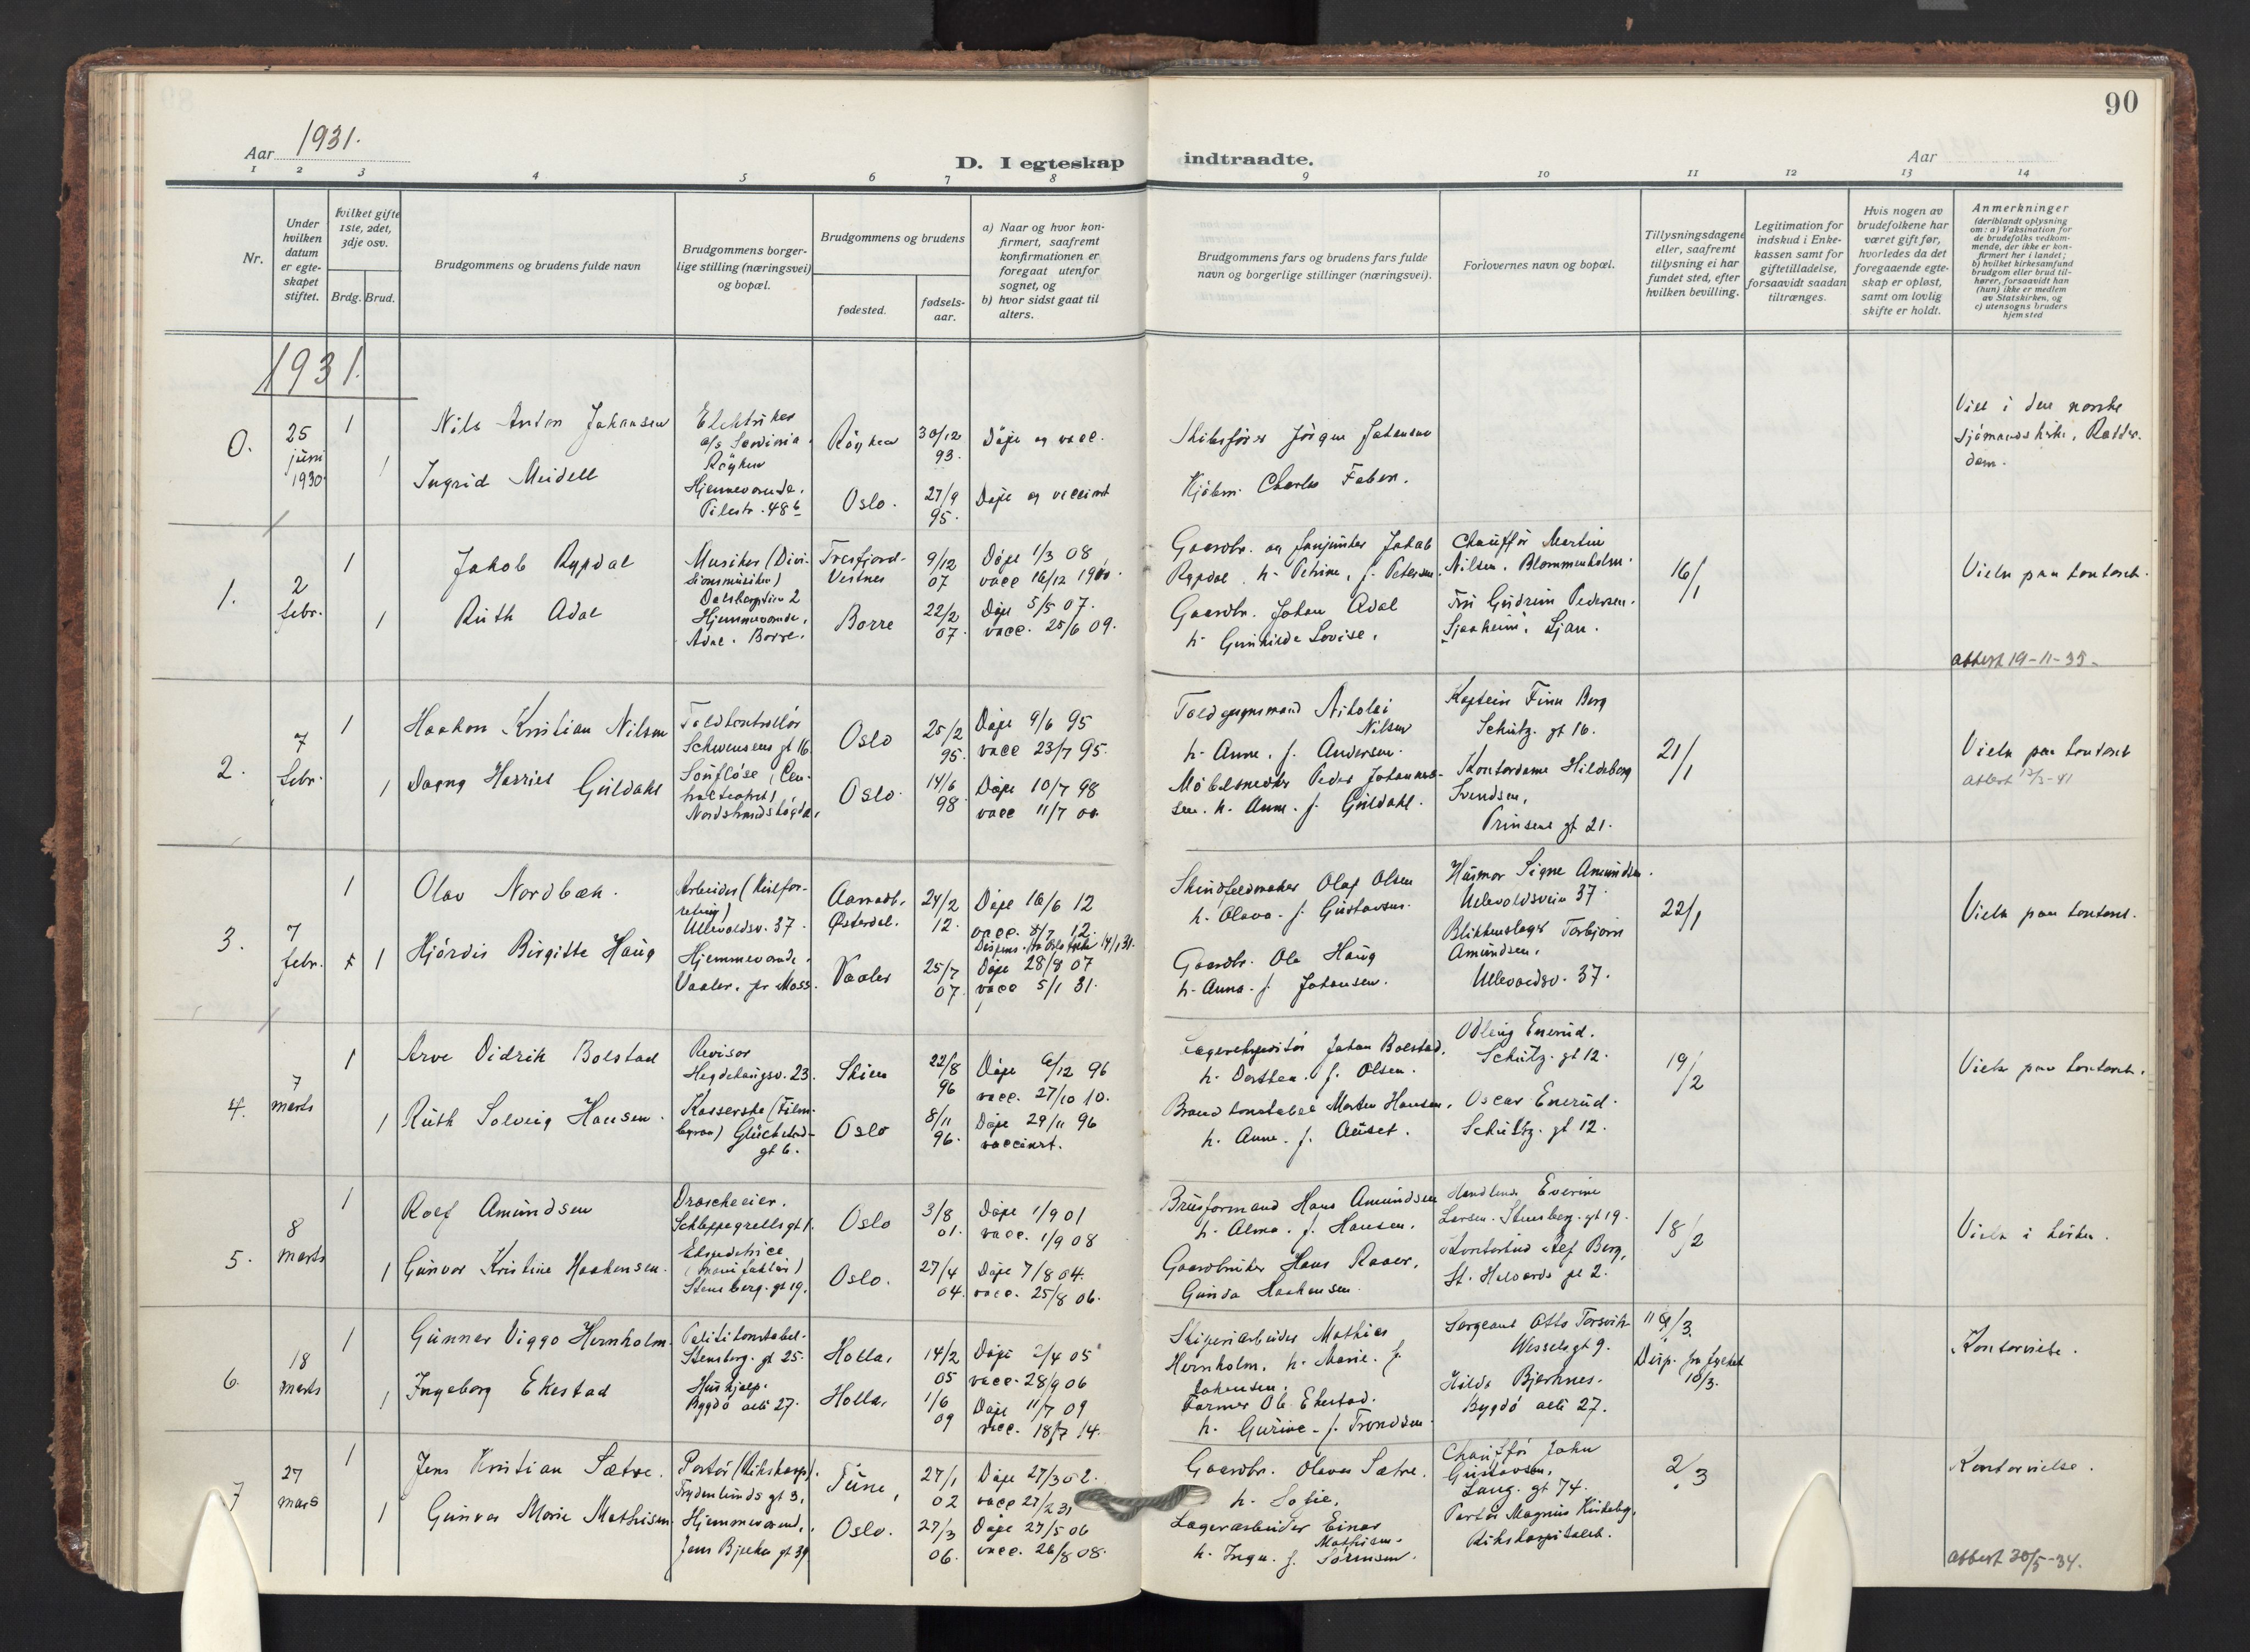 90
Aar 1931.
D. I egteskap indtraadte.
Aar
1 2 3 4 5 6 7 8 9 10 11 12 13 14
Nr.
Under hvilken datum er egteskapet stiftet.
hvilket gifte 1ste, 2det, 3dje osv.
Brdg. Brud.
Brudgommens og brudens fulde navn
Brudgommens borgerlige stilling (næringsvei) og bopæl.
Brudgommens og brudens
fødested.
fødselsaar.
a) Naar og hvor konfirmert, saafremt konfirmationen er foregaat utenfor sognet, og
b) hvor sidst gaat til alters.
Brudgommens fars og brudens fars fulde navn og borgerlige stillinger (næringsvei).
Forlovernes navn og bopæl.
Tillysningsdagene eller, saafremt tillysning ei har fundet sted, efter hvilken bevilling.
Legitimation for indskud i Enkekassen samt for giftetilladelse, forsaavidt saadan tiltrænges.
Hvis nogen av brudefolkene har været gift før, hvorledes da det foregaaende egteskap er opløst, samt om lovlig skifte er holdt.
Anmerkninger
(deriblandt oplysning om: a) Vaksination for de brudefolks vedkommende, der ikke er konfirmert her i landet; b) hvilket kirkesamfund brudgom eller brud tilhører, forsaavidt han (hun) ikke er medlem av Statskirken, og c) utensogns bruders hjemsted
1931.
0. 25 juni 1930
1 Nils Anton Johansen
Elektriker
Røyken
Røyken
30/12 93.
Døpe og vacc.
Skibsfører Jörgen Johansen
Viet i den norske
Sjömandskirke, Rotterdam.
1 Ingrid Meidell
Hjemmeværende.
Pilestr. 48 b
Oslo.
27/9 95.
Døpe og vaccinert
Kjöbm. Charles Faber.
1. 2 febr.
1 Jakob Rypdal
Musiker (Divisionsmusiker)
Tresfjord - Vestnes
9/12 07
Døpe 1/3 08
vacc 16/12 1910.
Gaardbr. og Jakob
Rypdal. h. Petrine, f. Petersen.
Chauffør Martin
Nilsen. Blommenholm.
16/1
Vielse paa kontoret.
1 Ruth Adal
Hjemmeværende,
Adal. Borre.
Borre
22/2 07.
Døpe 5/5 07.
vacc. 25/6 09.
Gaardbr. Johan Adal
h. Gunhilde Lovise.
Fru Gudrun Pedersen.
Sjoheim. Ljan.
attest 19-11-35.
2. 7 febr.
1 Haakon Kristian Nilsen
Toldkontrollör
Schwensens gt 16
Oslo
25/2 95.
Døpe 9/6 95
vacc 23/7 95.
Nikolai
Nilsen
h. Anne, f. Andersen.
Kaptein Finn Berg
Schultz. gt 16.
21/1
Vielse paa kontoret
attest 12/3-41
1 Dagny Harriet Guldahl
Nordstrandshögda.
Oslo.
14/6 98
Døpe 10/7 98
vacc 11/7 00.
Möbelsnedker Peder Johannessen. h. Anne. f. Guldahl.
Kontordame Hildeborg
Svendsen,
Prinsens gt 21.
3. 7 febr.
1 Olav Nordbæk.
Arbeider
Ullevoldsv. 37.
Østerdal.
24/2 12.
Døpe 16/6 12
vacc. 8/7 12.
Olaf Olsen
h. Olava. f. Gustavsen.
Husmor Signe Amundsen.
Ullevoldsvein 37.
22/1
Vielse paa kontoret.
1 Hjördis Birgitte Haug
Hjemmeværende.
Vaaler. pr Moss.
Vaaler
25/7 07.
Døpe 28/8 07
vacc 5/1 31.
Gaardbr. Ole Haug
h. Anna. f. Johansen.
Blikkenslager Torbjørn
Amundsen,
Ullevoldsv. 37.
4. 7 marts
1 Arve Didrik Bolstad
Revisor
Hegdehaugsv. 23.
Skien
22/8 96
Døpe 6/12 96
vacc. 27/10 10.
Lagerekspeditör Johan Bolstad.
h. Dorthea. f. Olsen.
Odleiy Enerud.
Schultz. gt 12.
19/2
Vielse paa kontoret.
1 Ruth Solveig Hansen.
Kasserske (Filmbyraa) Glückstadgt 6.
Oslo
8/11 96.
Døpe 29/11 96
vaccinert.
Brandkonstabel Morten Hansen.
h. Anne. f. Auset.
Oscar Enerud.
Schultz. gt 12.
5. 8 marts
1 Rolf Amundsen
Droscheeier.
Schleppegrells gt 1.
Oslo
3/8 01.
Døpe 1/9 01
vacc. 1/9 08
Hans Amundsen
h. Alma. f. Hansen.
Handlende Everine
Larsen. Stensberg. gt 19.
18/2
Vielse i kirken.
1 Gunvor Kristine Haakensen.
Ekspeditrice
Stensberg. gt 19.
Oslo.
27/4 04.
Døpe 7/8 04.
vacc. 25/8 06.
Gaardbruker Hans Raaer.
Gunda Haakensen.
Leif Berg,
St. Halvards pl 2.
6. 18 marts
1 Gunner Viggo Hernholm.
Politikonstabel.
Stensberg. gt 25.
Holla,
14/2 05
Døpe 2/4 05
vacc. 28/9 06
Mathias
Hernholm. h. Marie. f. Johansen.
Sergeant Otto Torsvik
Wessels gt 9.
Disp. fra fogden
10/3.
Kontorvielse.
1 Ingeborg Ekestad
Hushjelp.
Bygdö allé 27.
Holla,
1/6 09
Døpe 11/7 09
vacc. 18/7 14.
Farmer Ole Ekestad.
h. Gurine. f. Trondsen.
Hilda Bjerknes.
Bygdö allé 27.
7 27 mars
1 Jens Kristian Sætre.
Portör (Rikshosp.).
Frydenlunds gt 3,
Tune,
27/1 02
Døpe 27/3 02.
vacc 27/2 31
Gaardbr. Olavus Sætre.
h. Sofie,
Chauffør John
Gustavsen,
Lang. gt 74.
2/3
Kontorvielse.
1 Gunvor Marie Mathisen.
Hjemmeværend.
Jens Bjelkes gt 39
Oslo.
27/3 06.
Døpe 27/5 06
vacc. 26/8 08.
Lagerarbeider Einar
Mathisen.
h. Inga. f. Sörensen.
Portör Magnus Kirkeby.
Rikshospitalet.
attest 30/5-34.